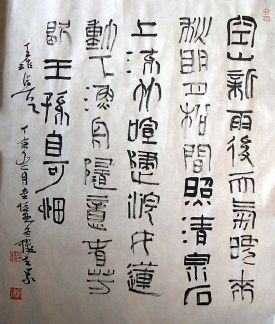 空山新雨後天氣晚來
秋明月松間照清泉石
上流竹喧歸浣女蓮
動下漁舟隨意春芳
歇王孫自可留
丁亥